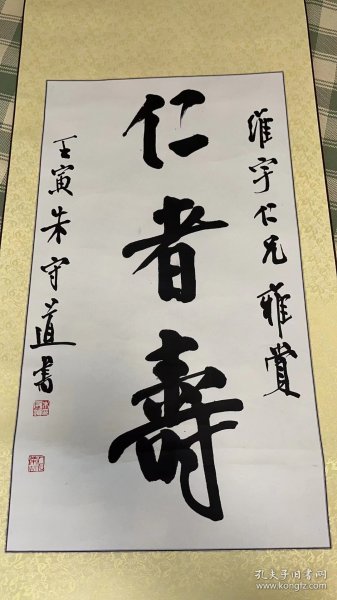 維宇仁兄雅賞
仁者壽
壬寅朱守道書
孔夫子旧书网